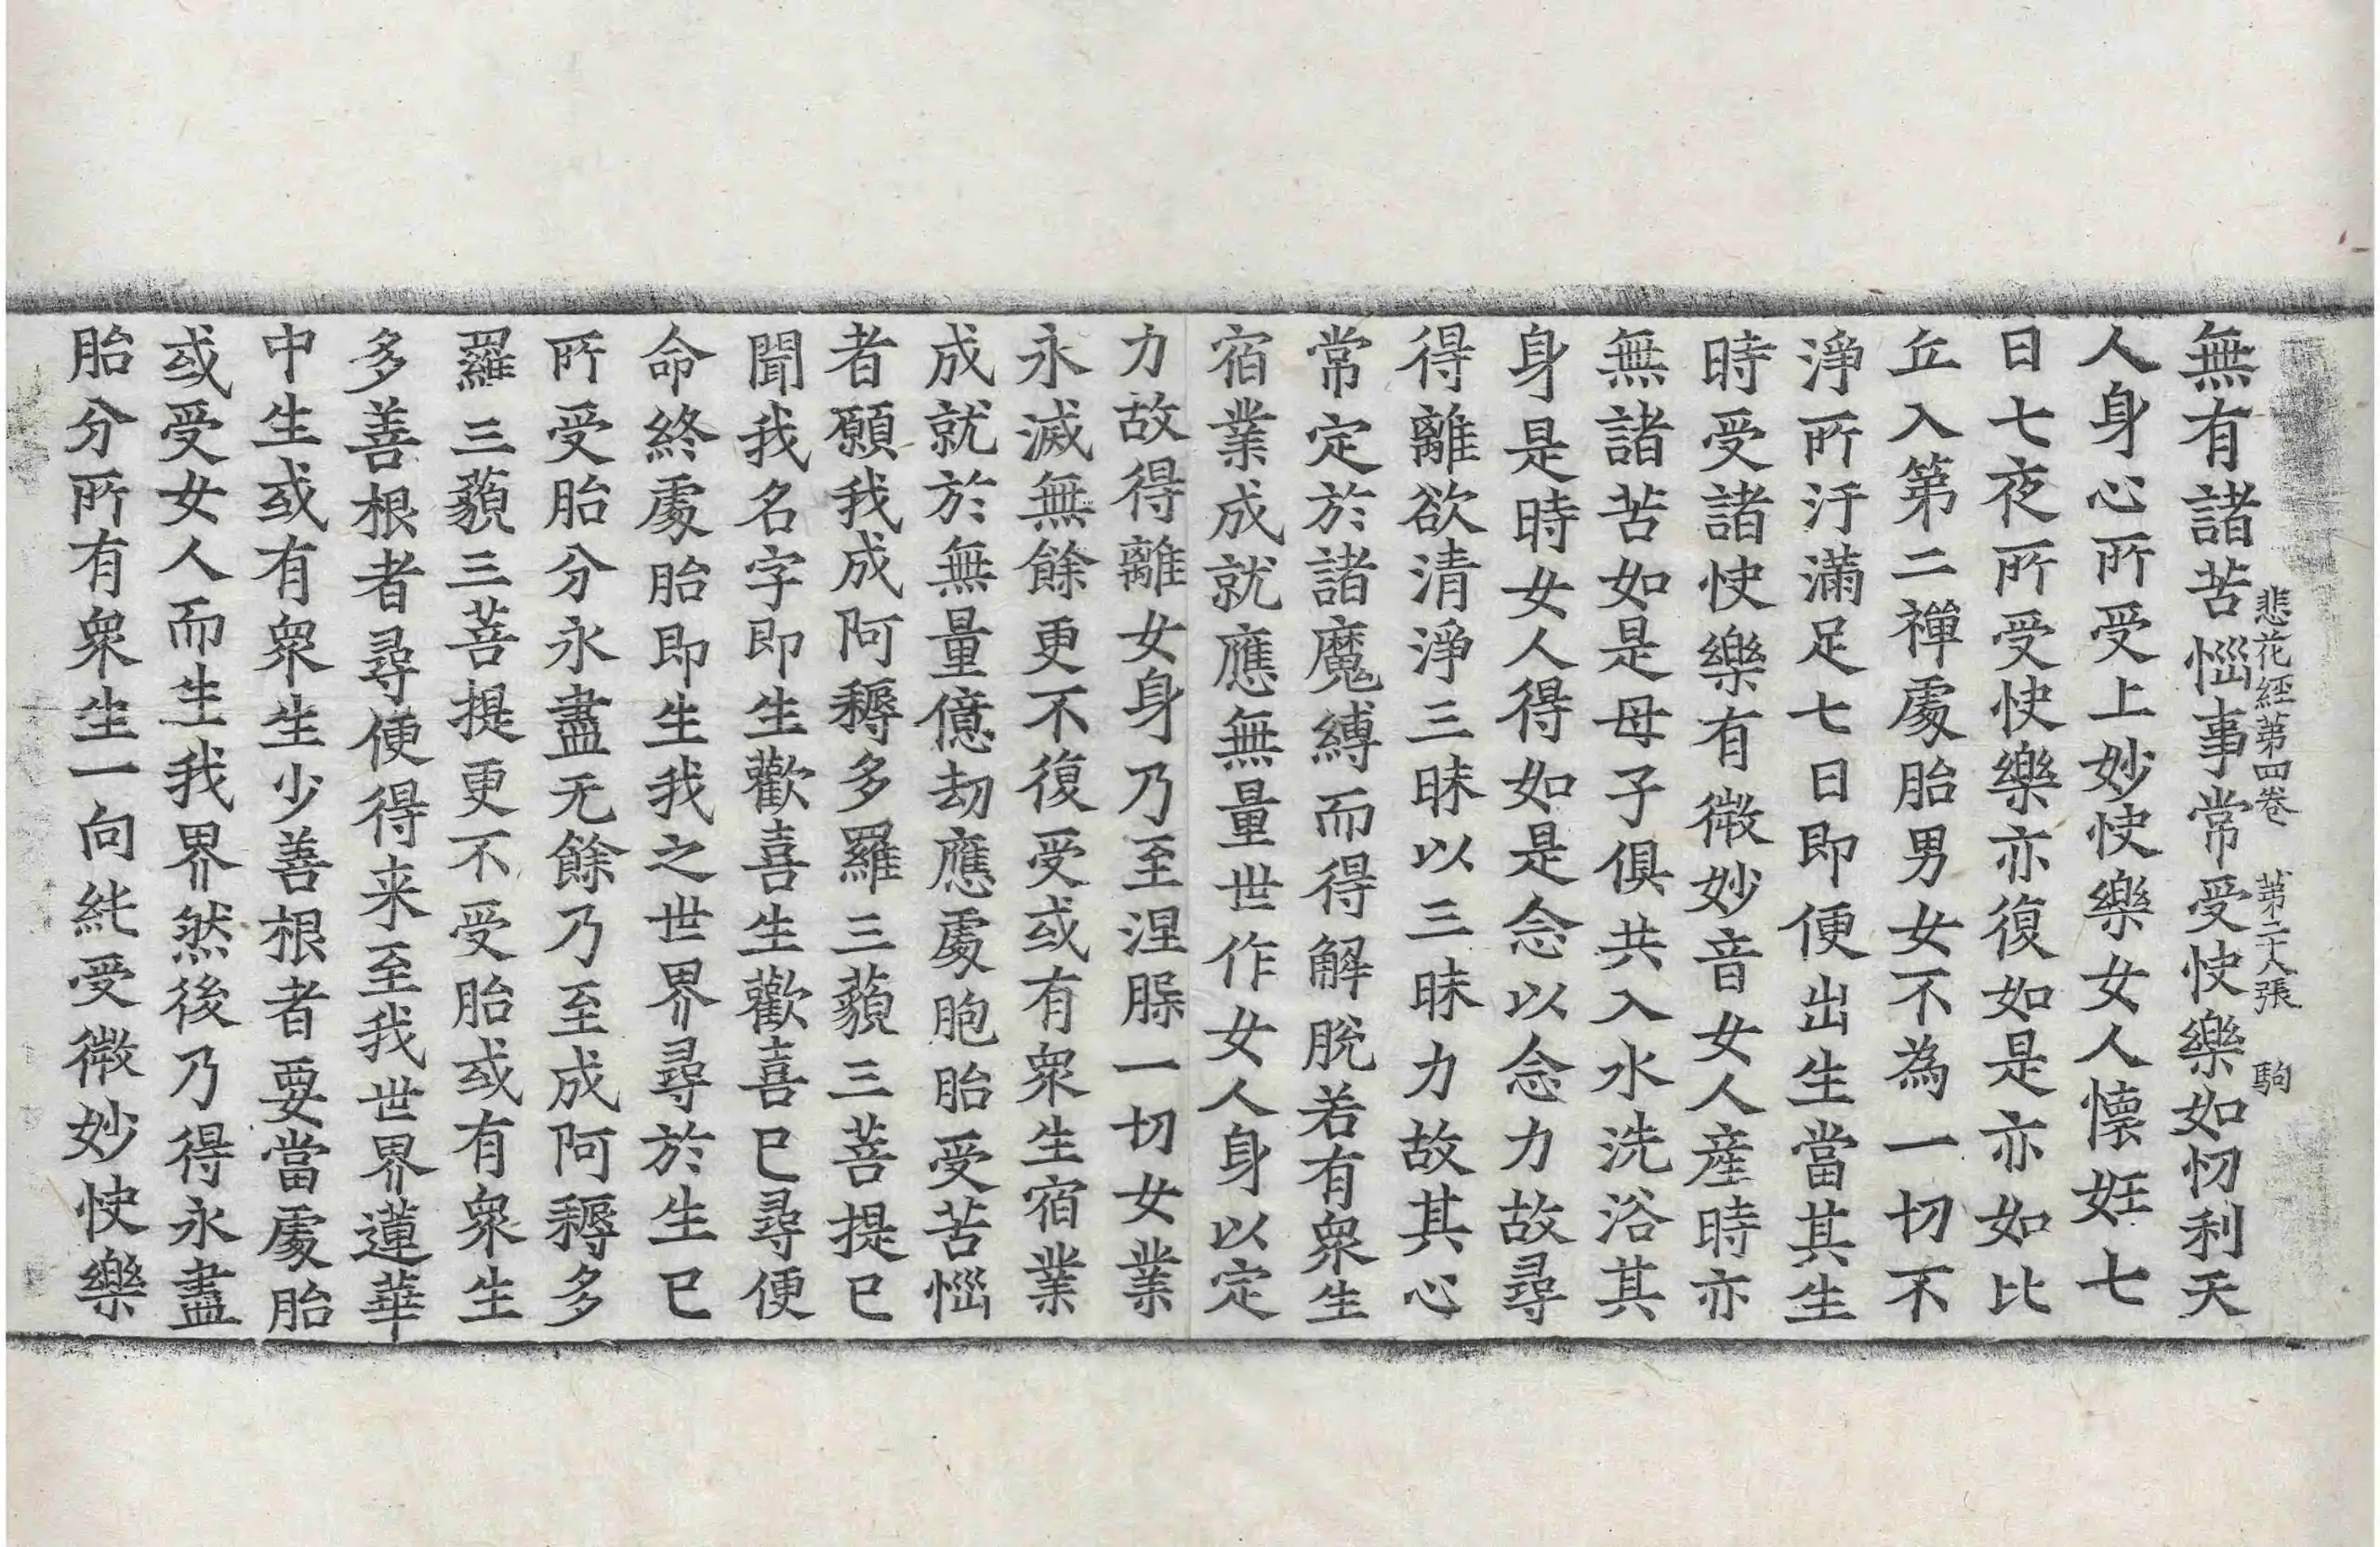 悲花經第四卷 第二十八張 駒
無有諸苦惱事常受快樂如忉利天
人身心所受上妙快樂女人懷妊七
日七夜所受快樂亦復如是亦如比
丘入第二禪處胎男女不為一切不
淨所汙滿足七日即便出生當其生
時受諸快樂有微妙音女人産時亦
無諸苦如是母子俱共入水洗浴其
身是時女人得如是念以念力故尋
得離欲清淨三昧以三昧力故其心
常定於諸魔縛而得解脫若有衆生
宿業成就應無量世作女人身以定
力故得離女身乃至涅槃一切女業
永滅無餘更不復受或有衆生宿業
成就於無量億劫應處胞胎受苦惱
者願我成阿耨多羅三藐三菩提已
聞我名字即生歡喜生歡喜已尋便
命終處胎即生我之世界尋於生已
所受胎分永盡无餘乃至成阿耨多
羅三藐三菩提更不受胎或有衆生
多善根者尋便得来至我世界蓮華
中生或有衆生少善根者要當處胎
或受女人而生我界然後乃得永盡
胎分所有衆生一向純受微妙快樂